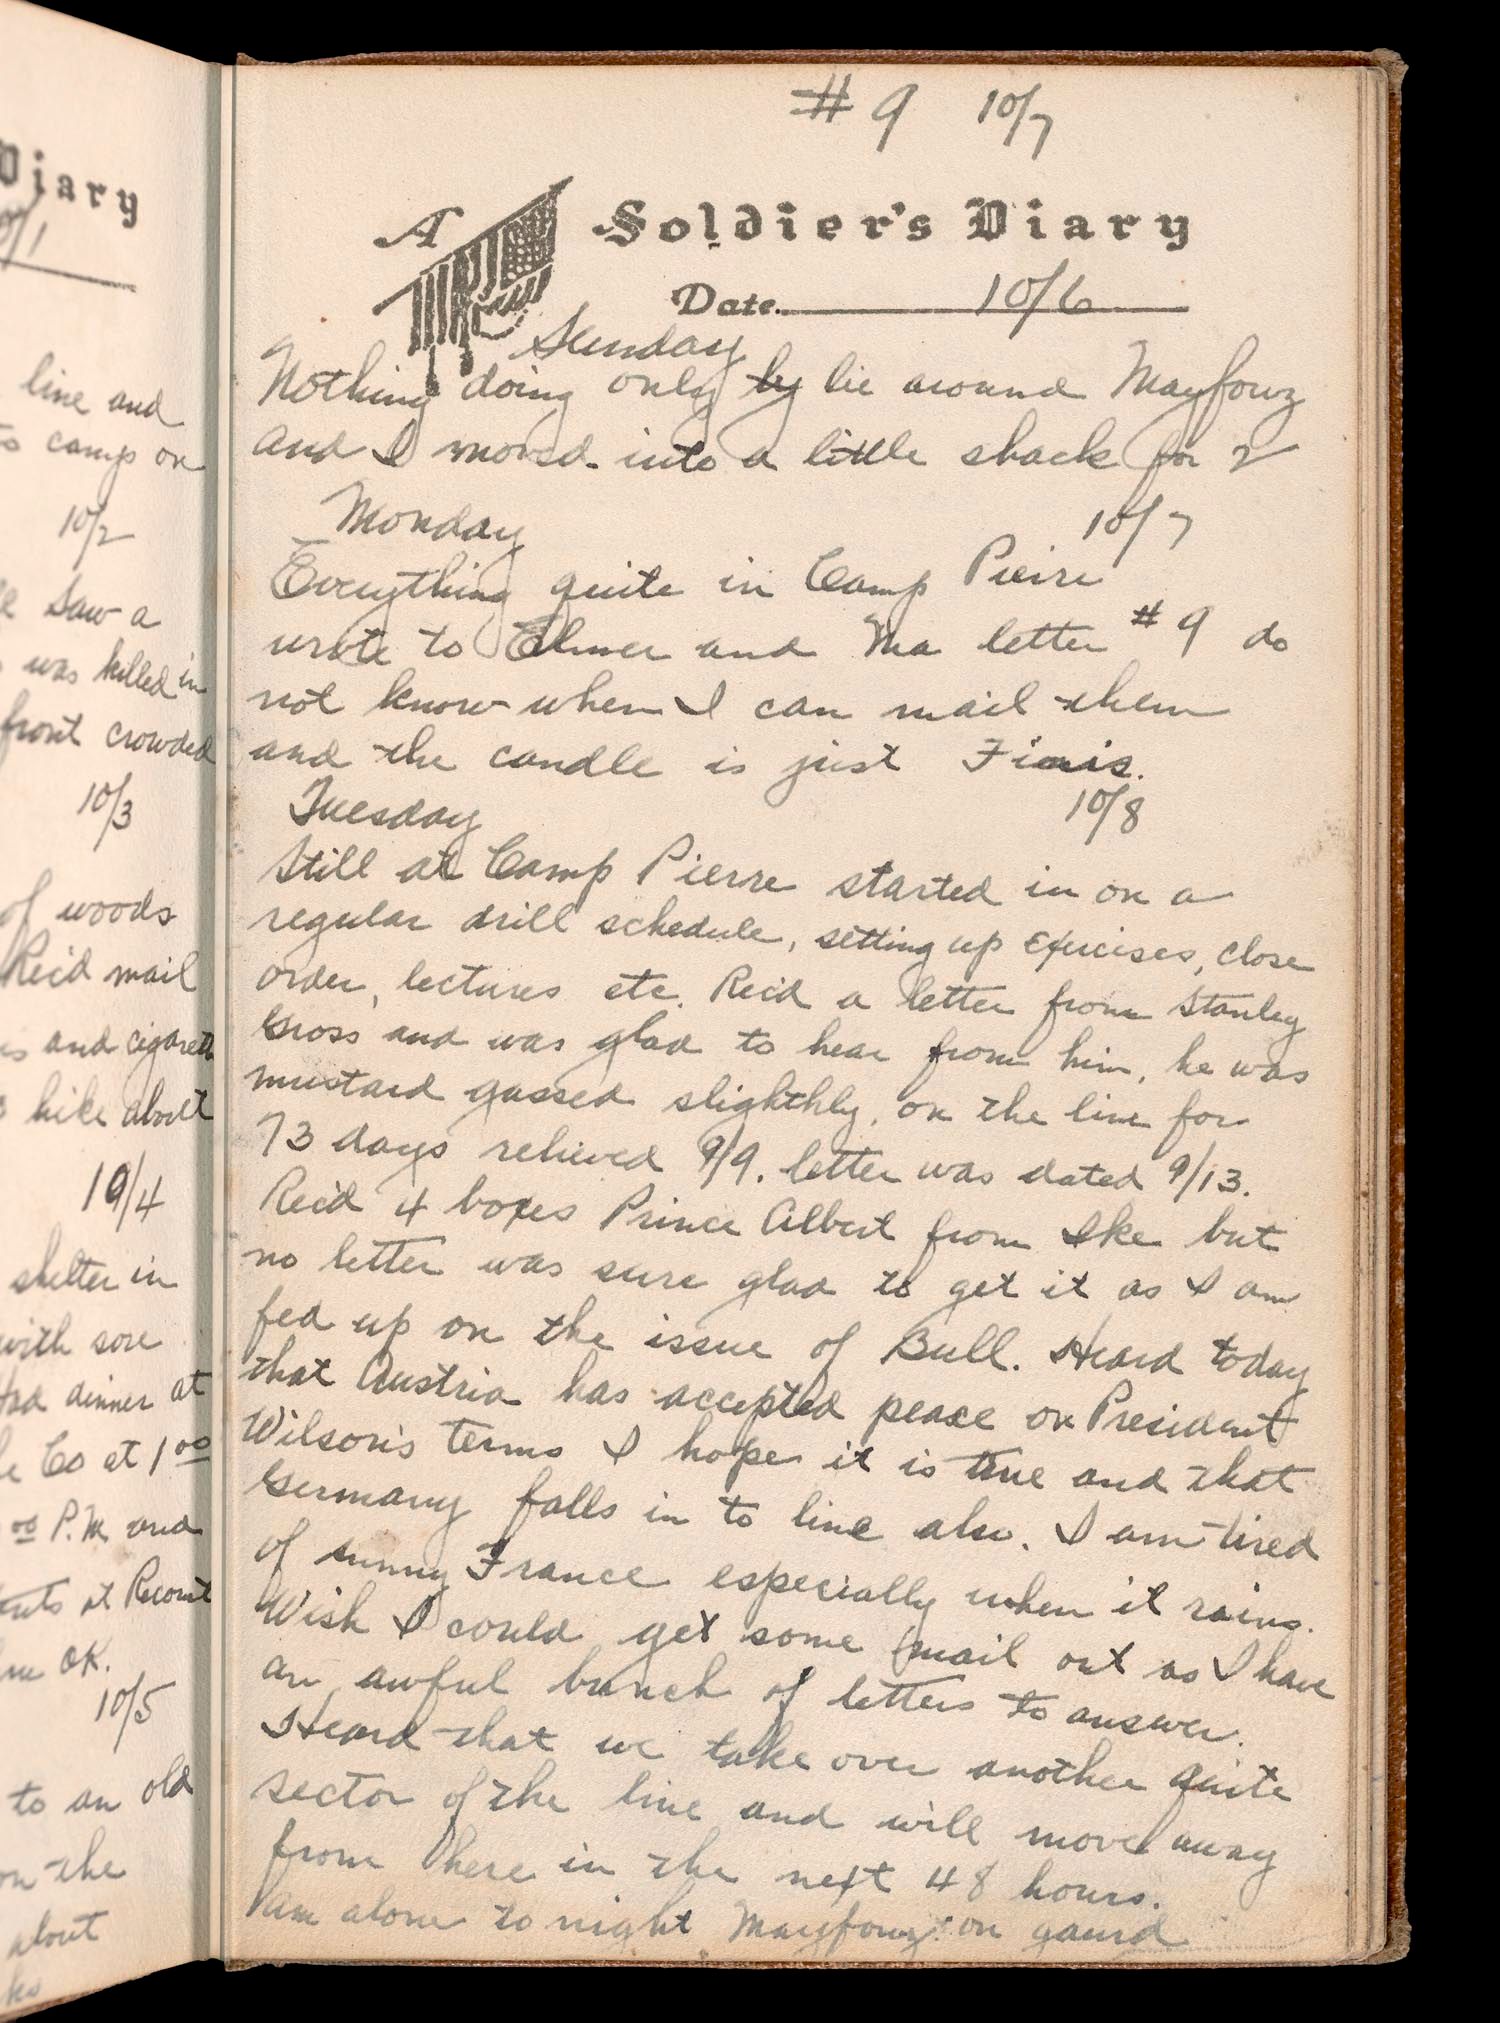 Diary
0/1
line and
to camp on
10/2
saw a
was killed in
front crowded
10/3
of woods
Rec'd mail
and cigarett
hike about
10/4
shelter in
with sore
Had dinner at
Co at 1 00
00 P.M. and
at Recourt
OK.
10/5
to an old
on the
about
# 9 10/7
A Soldier's Diary
Date 10/6
Sunday
Nothing doing only ly lie around Mayfowz
and I moved into a little shack for 2
Monday 10/7
Everything quite in Camp Pierre
wrote to Elmer and Ma letter # 9 do
not know when I can mail them
and the candle is just Finis.
Tuesday 10/8
Still at Camp Pierre started in on a
regular drill schedule, setting up exercises, close
order, lectures etc. Rec'd a letter from Stanley
Gross and was glad to hear from him, he was
mustard gassed slighthly, on the line for
73 days relieved 9/9. letter was dated 9/13.
Rec'd 4 boxes Prince Albert from Ike but
no letter was sure glad to get it as I am
fed up on the issue of Bull. Heard today
that Austria has accepted peace on President
Wilson's terms I hope it is true and that
Germany falls in to line also. I am tired
of sunny France especially when it rains.
Wish I could get some mail out as I have
an awful bunch of letters to answer.
Heard that we take over another quite
sector of the line and will move away
from here in the next 48 hours.
Am alone to night Mayfowz on gaurd